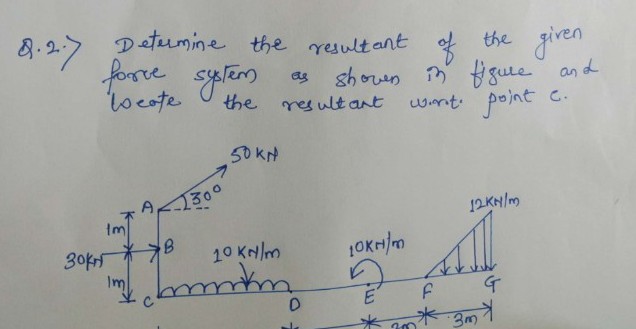 Q.2.) Determine the resultant of the given
force system as shown in figure and
locate the resultant w.r.t. point C.
50 KN
30°
A
12KN/m
1m
30KN
B
10 KN/m
10KN/m
1m
C
D
E
F
G
2m
3m